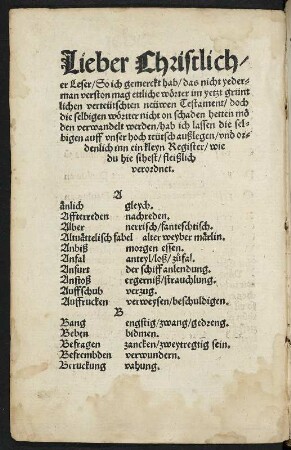 Lieber Christlich/
er Leser/So ich gemerckt hab/das nicht yeder-
man verston mag ettliche wörter im yetzt grünt
lichen verteütschten neüwen Testament/doch
die selbigen wörtter nicht on schaden hetten mö
den verwandelt werden/hab ich lassen die sel-
bigen auff vnser hoch teütsch außlegen/vnd or-
denlich inn ein kleyn Register/wie
du hie sihest/fleißlich
verordnet.
A
änlich gleych.
Affterreden nachreden.
Alber nerrisch/fantestisch.
Altuättelisch fabel alter weyber märlin.
Anbiß morgen essen.
Anfal anteyl/loß/zůfal.
Anfurt der schiff anlendung.
Anstoß ergerniß/strauchlung.
Auffschub verzug.
Auffrucken verweysen/beschuldigen.
B
Bang engstig/zwang/gedreng.
Beben bidmen.
Befragen zancken/zweytregtig sein.
Befrembden verwundern.
Beruckung vahung.